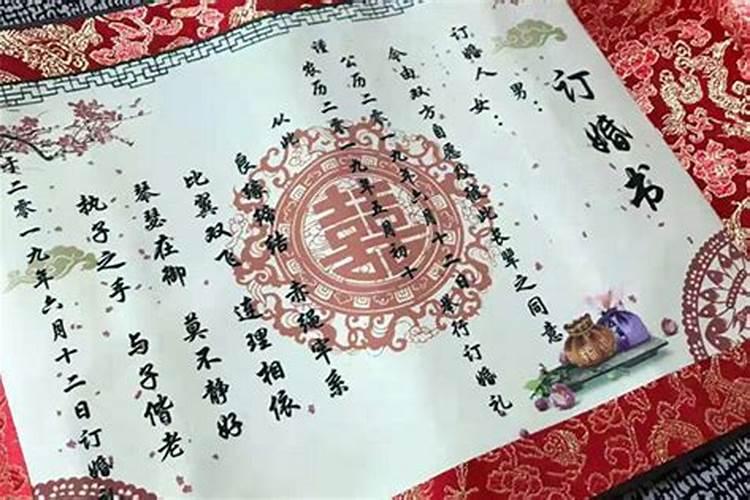 订婚书
订婚人 男：
女：
今由双方自愿及征此长辈之同意
公历二零一九年六月十二日举行订婚礼
谨农历二零一九年五月初十
从此 赤绳牢系
良缘缔结 连理相依
比翼双飞 莫不静好
琴瑟在御 与子偕老
执子之手
于二零一九年六月十二日订婚